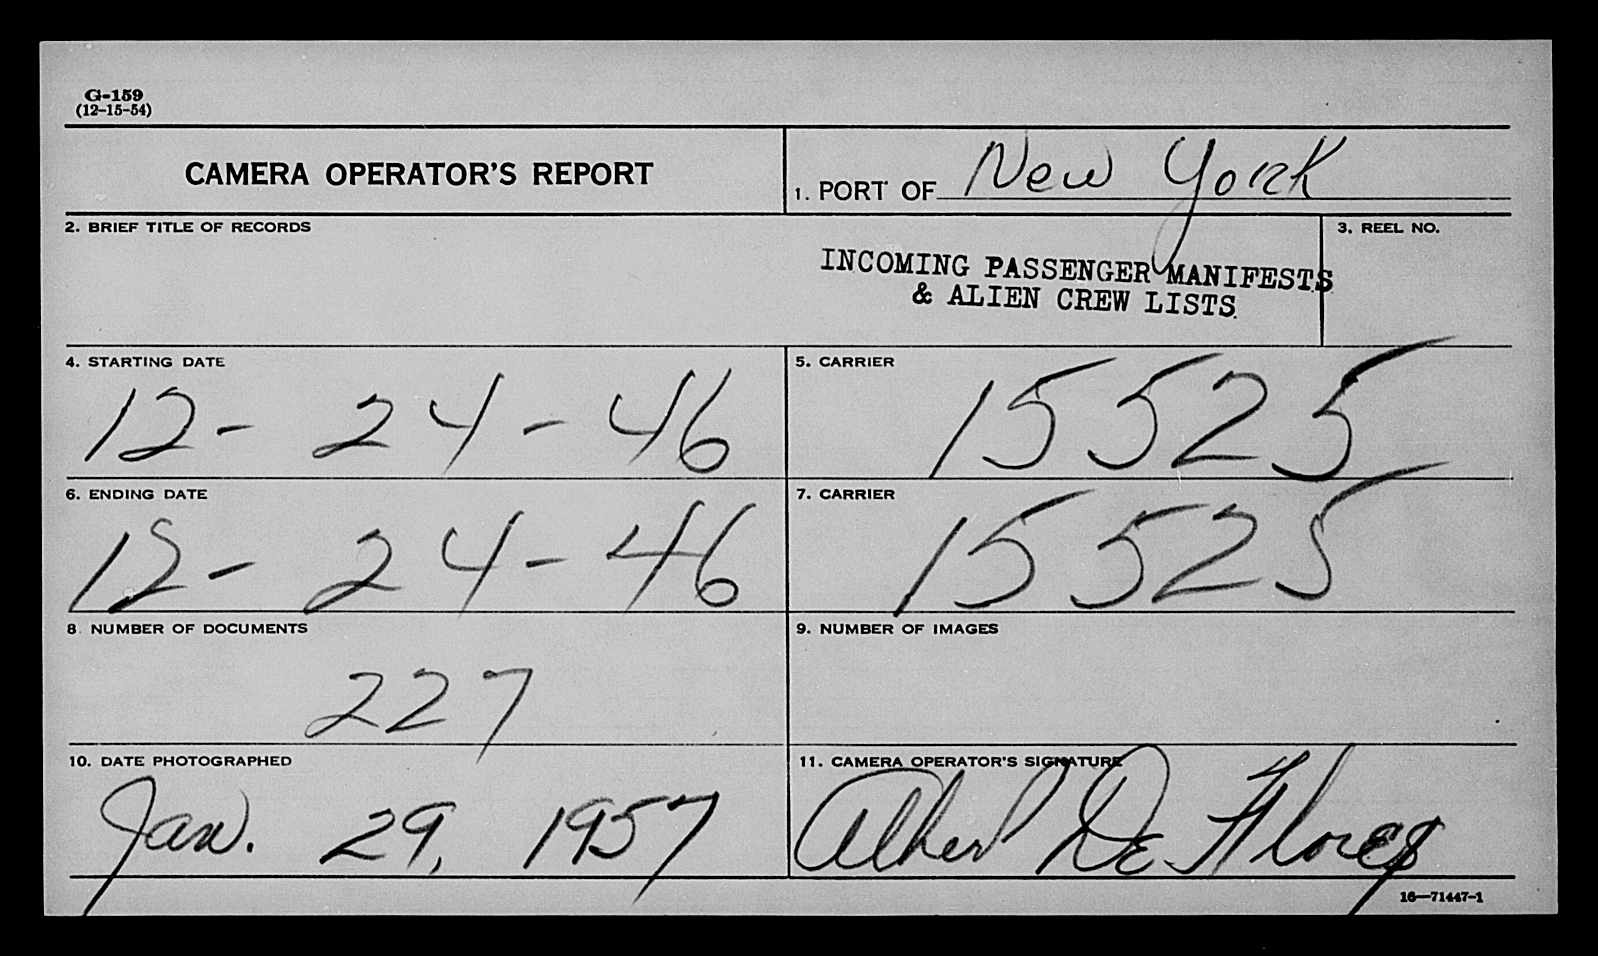 G-159
(12-15-54)
CAMERA OPERATOR'S REPORT
1. PORT OF New York
2. BRIEF TITLE OF RECORDS
INCOMING PASSENGER MANIFESTS
& ALIEN CREW LISTS
3. REEL NO.
4. STARTING DATE
12- 24-46
5. CARRIER
15525
6. ENDING DATE
12- 24-46
7. CARRIER
15525
8 NUMBER OF DOCUMENTS
227
9. NUMBER OF IMAGES
10. DATE PHOTOGRAPHED
Jan. 29, 1957
11. CAMERA OPERATOR'S SIGNATURE
Albert De Flores
16—71447-1